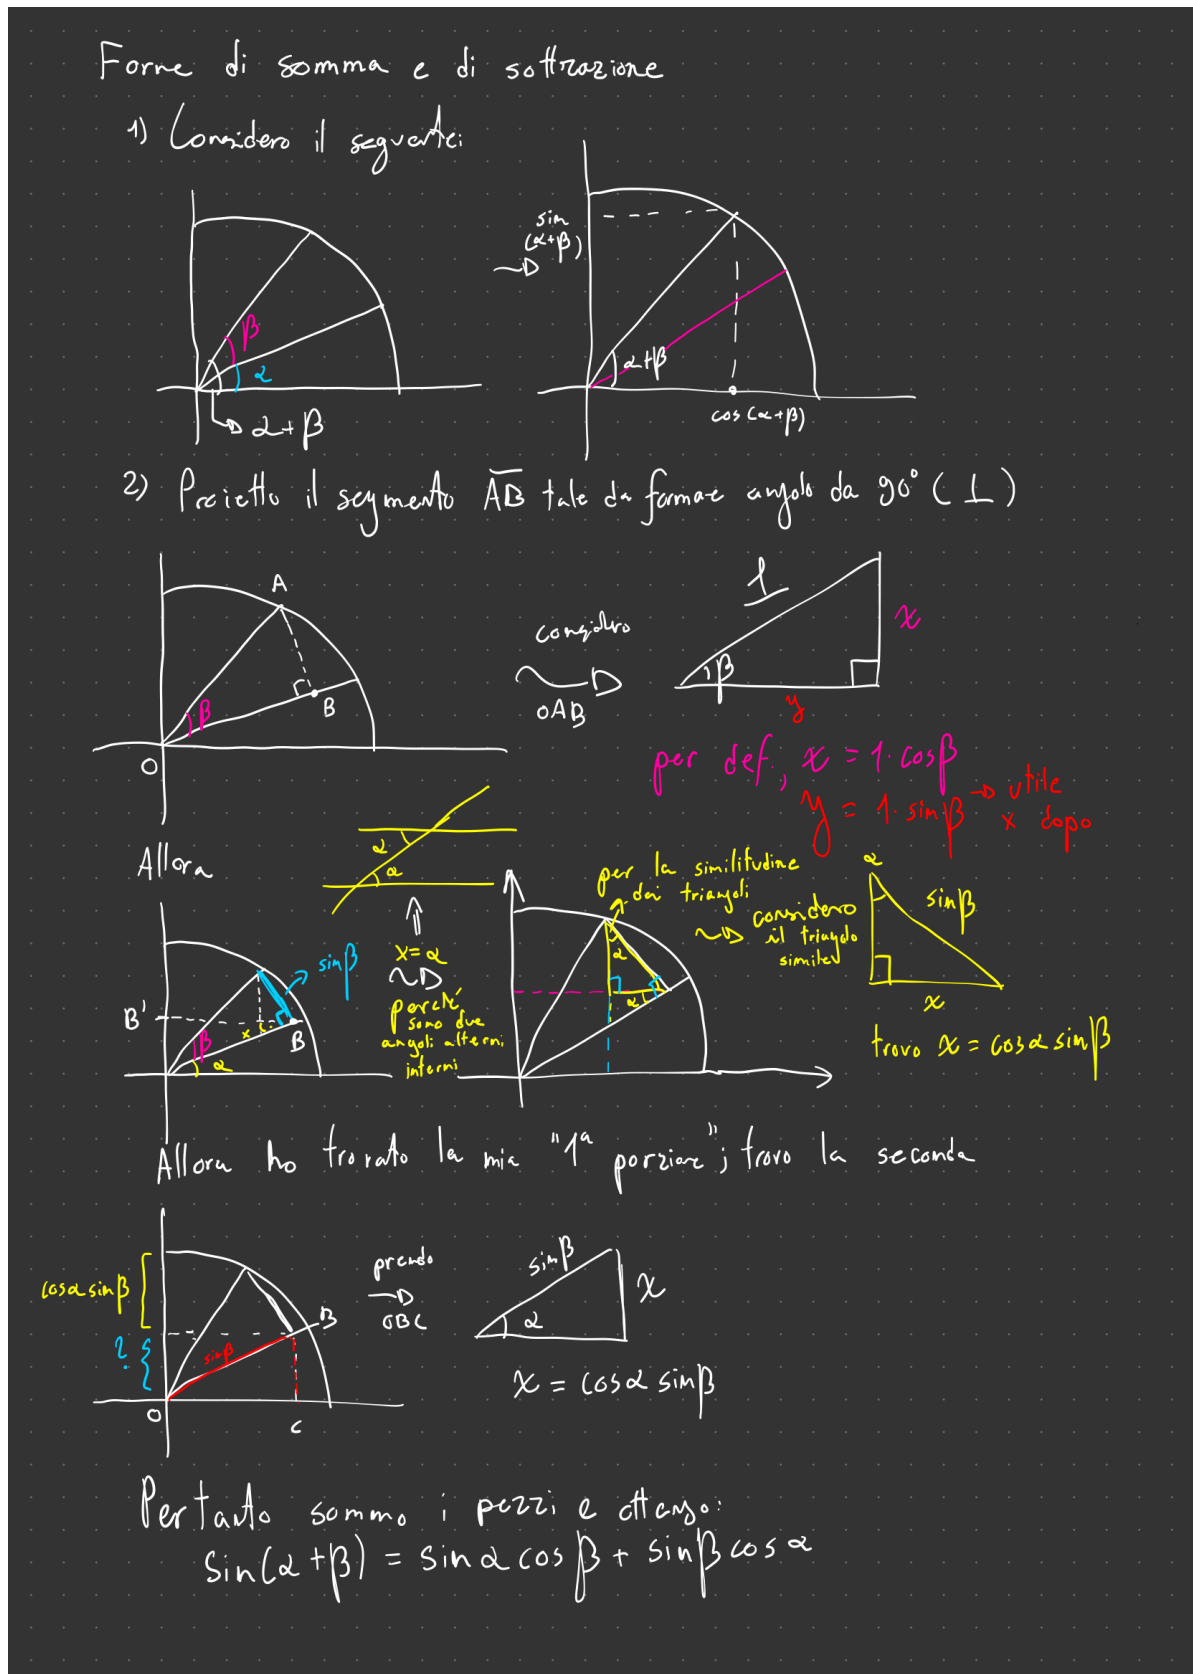 Forme di somma e di sottrazione
1) Considero il seguente:
β
α
α+β
sin
(α+β)
α+β
cos(α+β)
2) Proietto il segmento AB tale da formare angolo da 90° (⊥)
A
β
B
O
considero
OAB
1
β
x
y
per def., x = 1·cosβ
y = 1·sinβ → utile
x dopo
Allora
α
α
B'
sinβ
β
α
x
B
x=α
perché
sono due
angoli alterni
interni
per la similitudine
dei triangoli
α
α
considero
il triangolo
simile
α
sinβ
x
trovo x = cosα sinβ
Allora ho trovato la mia "1ª porzione"; trovo la seconda
cosα sinβ
?
sinβ
B
O
C
prendo
OBC
sinβ
α
x
x = cosα sinβ
Pertanto sommo i pezzi e ottengo:
sin(α+β) = sinα cosβ + sinβ cosα